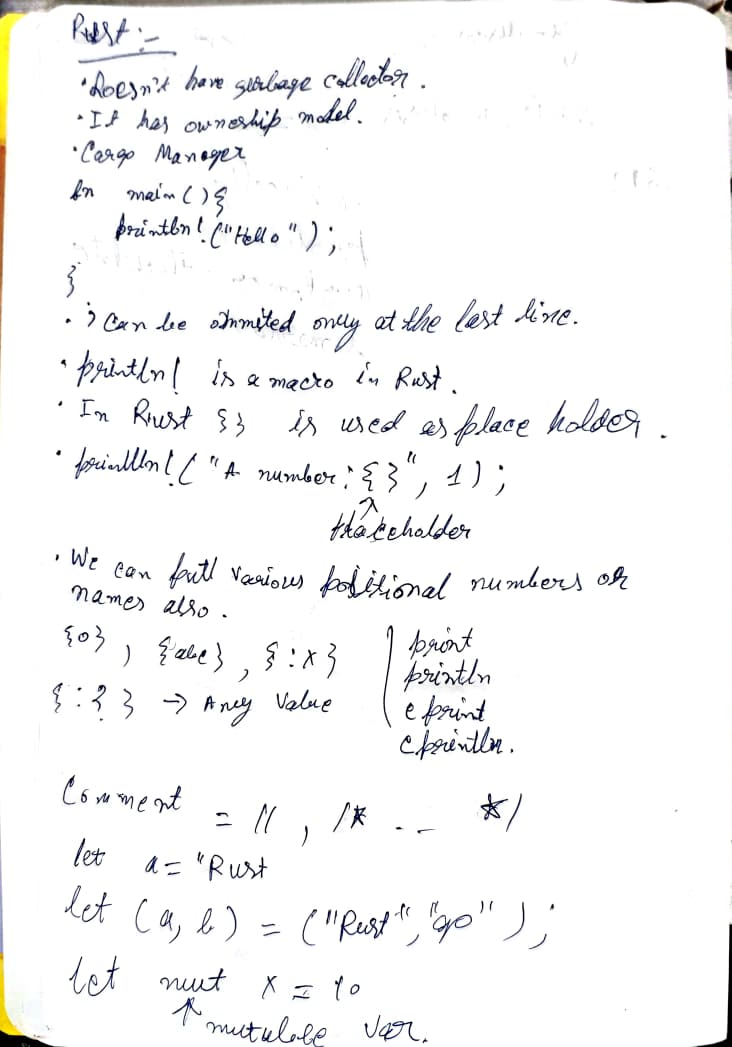 Rust :-
• Doesn't have garbage collector.
• It has ownership model.
• Cargo Manager
fn main(){
println!("Hello");
}
• ; can be ommited only at the last line.
• println! is a macro in Rust.
• In Rust {} is used as place holder.
• println!("A number: {}", 1);
placeholder
• We can put various positional numbers or
names also.
{0}, {abc}, {:x}
{:?} → Any Value
print
println
eprint
eprintln.
Comment = //, /* .. */
let a = "Rust
let (a, b) = ("Rust", "go");
let mut x = 10
mutulabe var.